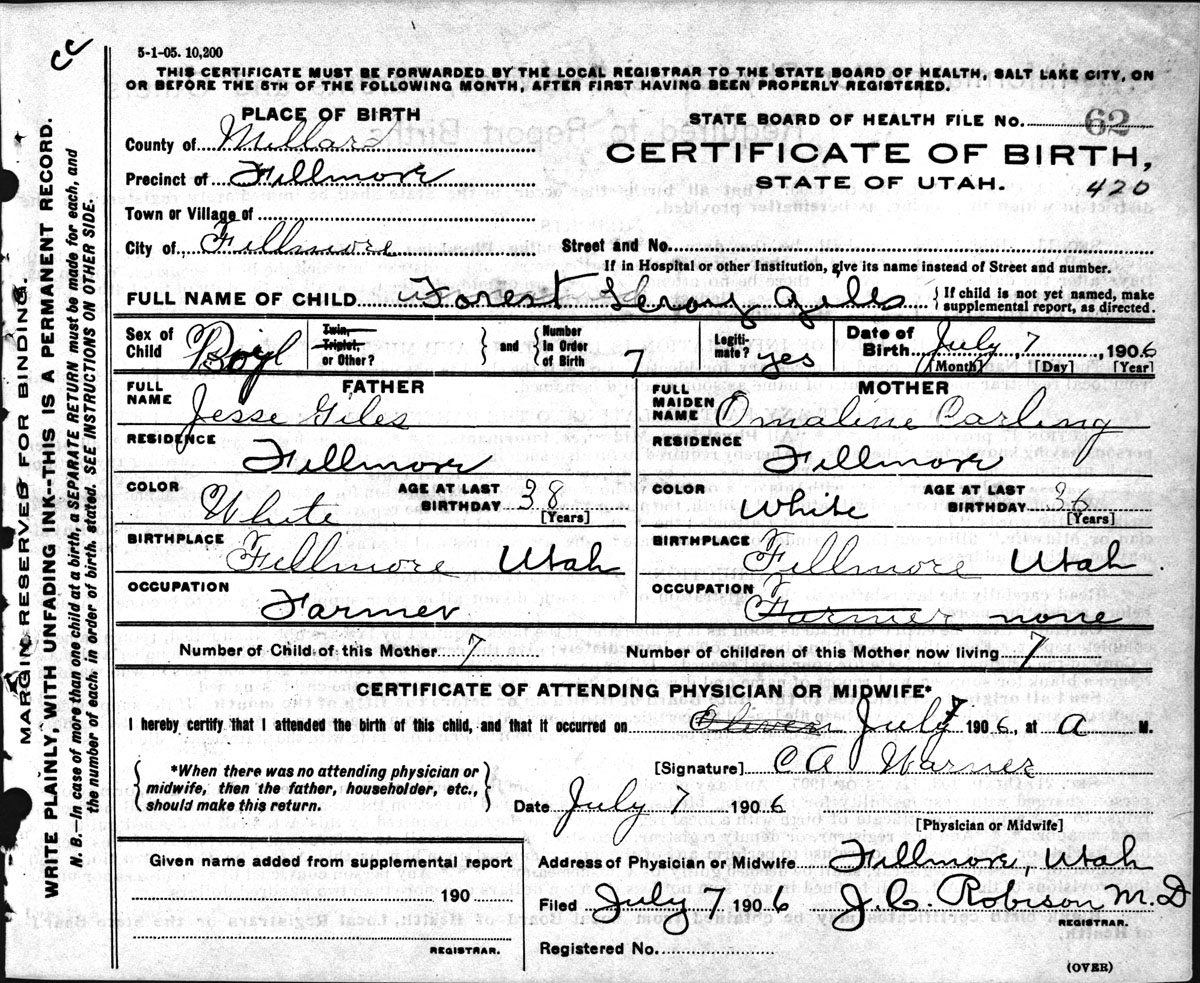 cc
5-1-05. 10,200
THIS CERTIFICATE MUST BE FORWARDED BY THE LOCAL REGISTRAR TO THE STATE BOARD OF HEALTH, SALT LAKE CITY, ON
OR BEFORE THE 5TH OF THE FOLLOWING MONTH, AFTER FIRST HAVING BEEN PROPERLY REGISTERED.
PLACE OF BIRTH
County of Millard
Precinct of Fillmore
Town or Village of
City of Fillmore
STATE BOARD OF HEALTH FILE NO. 62
CERTIFICATE OF BIRTH,
STATE OF UTAH.
420
Street and No.
If in Hospital or other Institution, give its name instead of Street and number.
FULL NAME OF CHILD Forest Leroy Giles
If child is not yet named, make
supplemental report, as directed.
Sex of Child Boy
Twin, Triplet, or Other?
and Number in Order of Birth 7
Legitimate? yes
Date of Birth July 7, 1906
[Month] [Day] [Year]
FATHER
FULL NAME Jesse Giles
RESIDENCE Fillmore
COLOR White AGE AT LAST BIRTHDAY 38 [Years]
BIRTHPLACE Fillmore Utah
OCCUPATION Farmer
MOTHER
FULL MAIDEN NAME Omaline Carling
RESIDENCE Fillmore
COLOR White AGE AT LAST BIRTHDAY 36 [Years]
BIRTHPLACE Fillmore Utah
OCCUPATION Farmer none
Number of Child of this Mother 7 Number of Children of this Mother now living 7
CERTIFICATE OF ATTENDING PHYSICIAN OR MIDWIFE*
I hereby certify that I attended the birth of this child, and that it occurred on July 7 1906, at a M.
*When there was no attending physician or
midwife, then the father, householder, etc.,
should make this return.
[Signature] C A Warner
Date July 7 1906
[Physician or Midwife]
Given name added from supplemental report
190
REGISTRAR.
Address of Physician or Midwife Fillmore, Utah
Filed July 7 1906 J. C. Robison M. D
REGISTRAR.
Registered No.
(OVER)
MARGIN RESERVED FOR BINDING.
WRITE PLAINLY, WITH UNFADING INK--THIS IS A PERMANENT RECORD.
N. B.—In case of more than one child at a birth, a SEPARATE RETURN must be made for each, and
the number of each, in order of birth, stated. SEE INSTRUCTIONS ON OTHER SIDE.